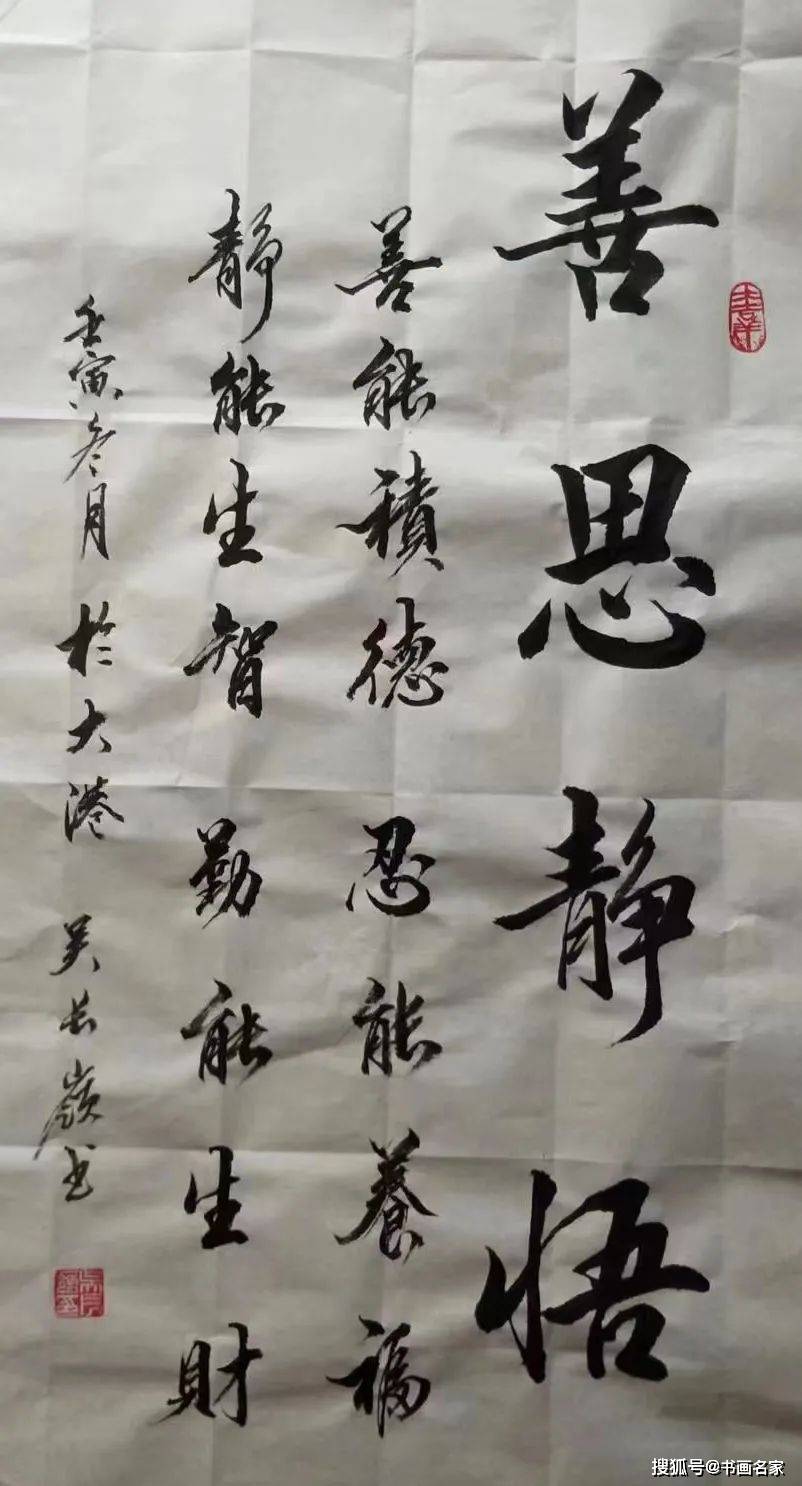 善思静悟
善能積德 忍能養福
静能生智 勤能生財
壬寅冬月於大港 吴长嶺书
搜狐号@书画名家